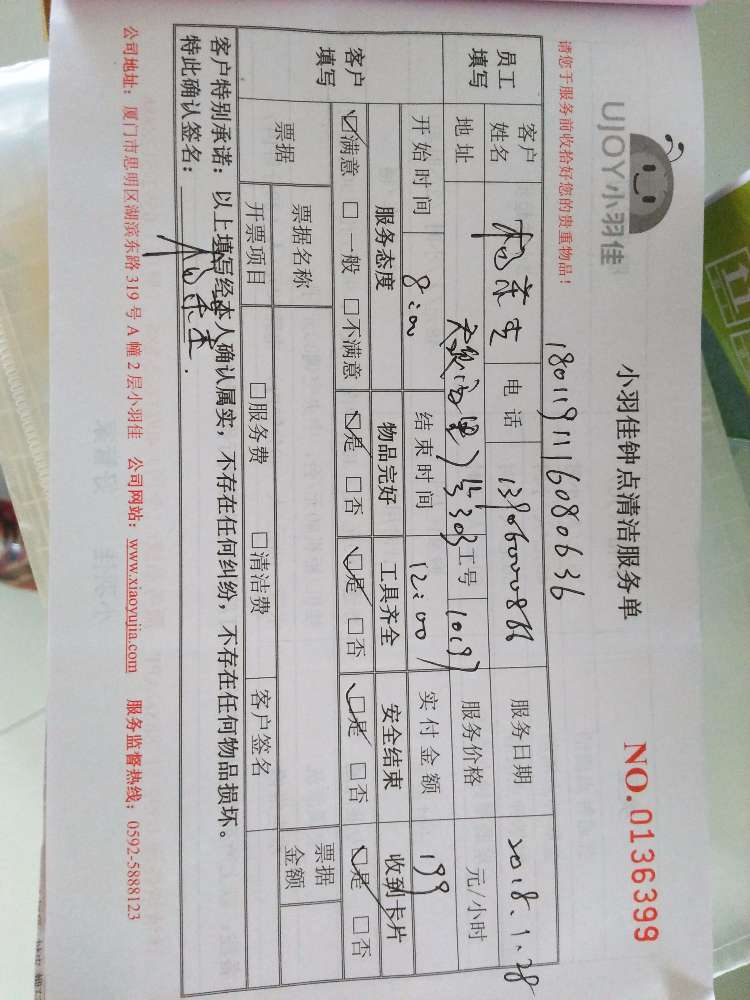 UJOY小羽佳
小羽佳钟点清洁服务单
NO.0136399
请您于服务前收拾好您的贵重物品！
1801191116080636
员工填写
客户姓名
电话
服务日期 2018.1.28
地址
工号
服务价格 元/小时
开始时间 8:00 结束时间 12:00 实付金额 199
客户填写
服务态度 物品完好 工具齐全 安全结束 收到卡片
☑满意 □一般 □不满意 ☑是 □否 ☑是 □否 ☑是 □否 ☑是 □否
票据
票据名称
票据金额
开票项目 □服务费 □清洁费 客户签名
客户特别承诺：以上填写经本人确认属实，不存在任何纠纷，不存在任何物品损坏。
特此确认签名：
公司地址：厦门市思明区湖滨东路 319 号 A 幢 2 层小羽佳 公司网站：www.xiaoyujia.com 服务监督热线：0592-5888123